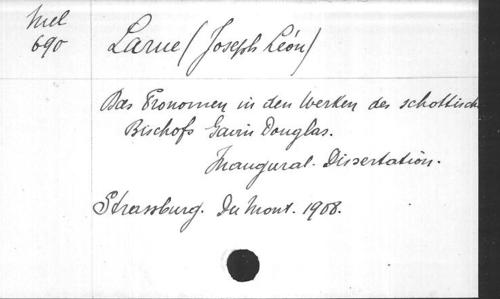 Mel
690
Larue (Joseph Léon)
Das Pronomen in den Werken des schottisch
Bischofs Gavin Douglas.
Inaugural-Dissertation.
Strassburg. Du Mont. 1908.